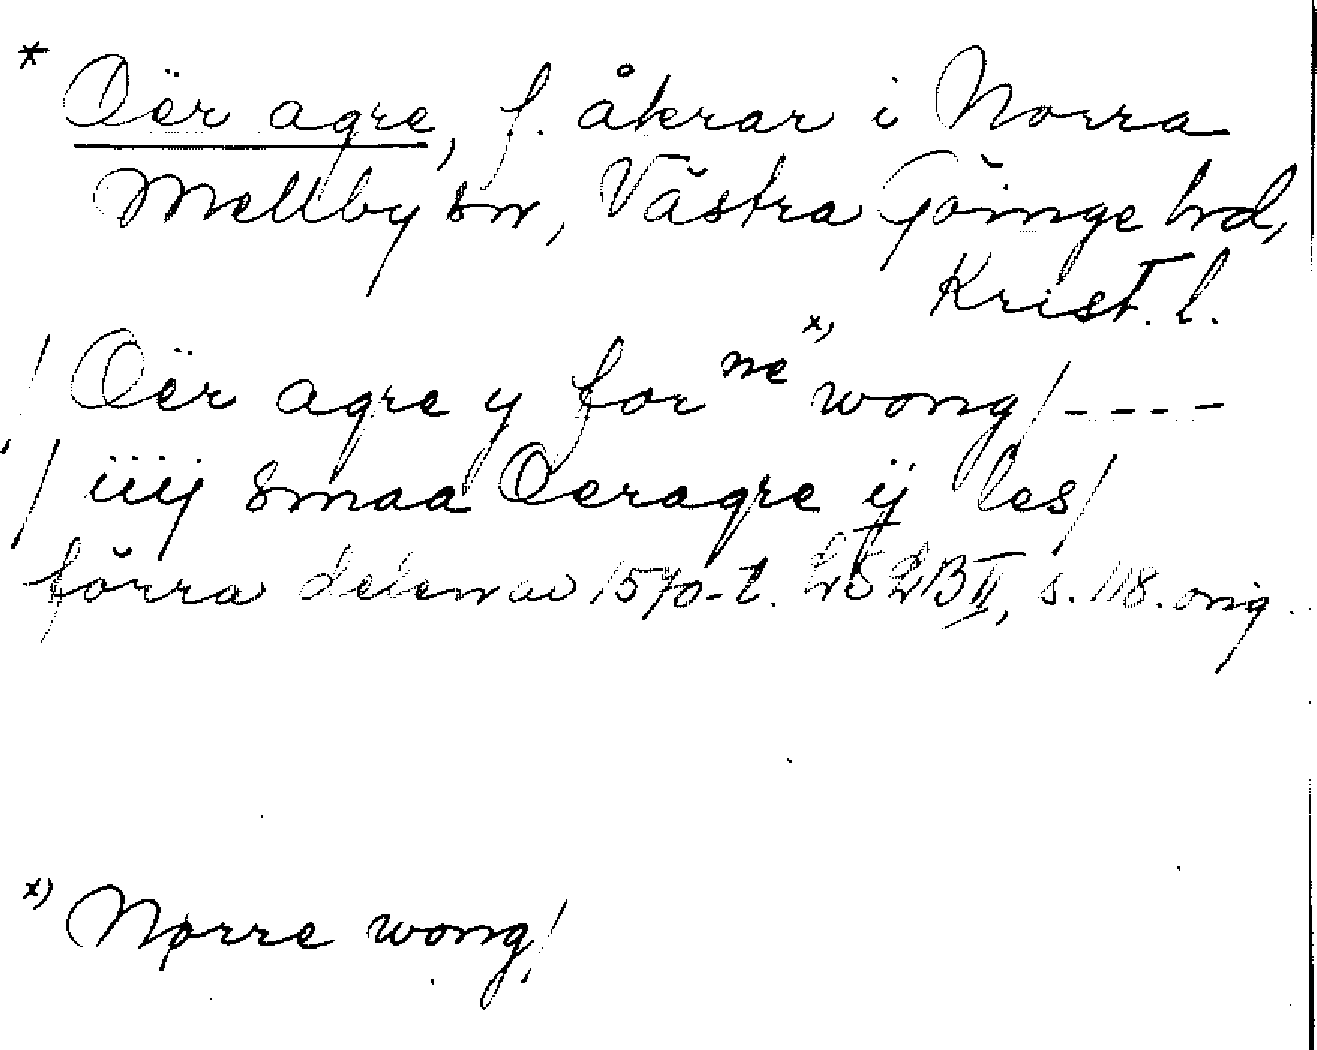 * Oër agre, f. åkrar i Norra
Mellby sn, Västra Göinge hd,
Krist. l.
/ Oër agre y for ne x) wong / - - - -
/ iiij smaa Oeragre ij les /
förra delen av 1570-t. LSLB II, s. 118. orig.
x) Nørre wong /